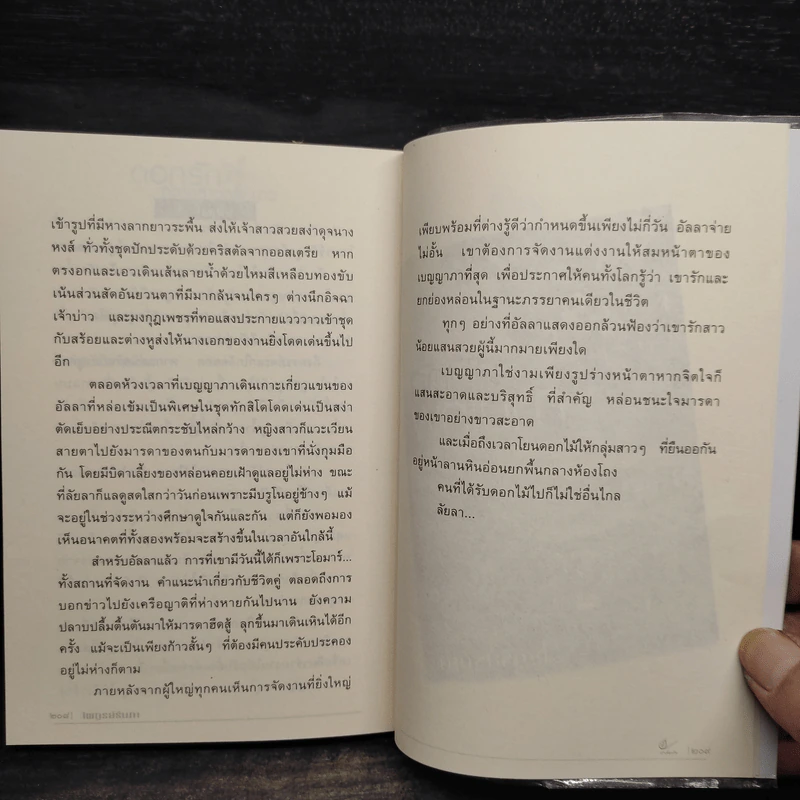 เข้ารูปที่มีหางลากยาวระพื้น ส่งให้เจ้าสาวสวยสง่าดุจนาง
หงส์ ทั่วทั้งชุดปักประดับด้วยคริสตัลจากออสเตรีย หาก
ตรงอกและเอวเดินเส้นลายน้ำด้วยไหมสีเหลือบทองขับ
เน้นส่วนสัดอันยวนตาที่มีมากล้นจนใครๆ ต่างนึกอิจฉา
เจ้าบ่าว และมงกุฎเพชรที่ทอแสงประกายแวววาวเข้าชุด
กับสร้อยและต่างหูส่งให้นางเอกของงานยิ่งโดดเด่นขึ้นไป
อีก
ตลอดห้วงเวลาที่เบญญาภาเดินเกาะเกี่ยวแขนของ
อัลลาที่หล่อเข้มเป็นพิเศษในชุดทักสิโดโดดเด่นเป็นสง่า
ตัดเย็บอย่างประณีตกระชับไหล่กว้าง หญิงสาวก็แวะเวียน
สายตาไปยังมารดาของตนกับมารดาของเขาที่นั่งกุมมือ
กัน โดยมีบิดาเลี้ยงของหล่อนคอยเฝ้าดูแลอยู่ไม่ห่าง ขณะ
ที่ลัยลาก็แลดูสดใสกว่าวันก่อนเพราะมีบรูโนอยู่ข้างๆ แม้
จะอยู่ในช่วงระหว่างศึกษาดูใจกันและกัน แต่ก็ยังพอมอง
เห็นอนาคตที่ทั้งสองพร้อมจะสร้างขึ้นในเวลาอันใกล้นี้
สำหรับอัลลาแล้ว การที่เขามีวันนี้ได้ก็เพราะโอมาร์...
ทั้งสถานที่จัดงาน คำแนะนำเกี่ยวกับชีวิตคู่ ตลอดถึงการ
บอกข่าวไปยังเครือญาติที่ห่างหายกันไปนาน ยังความ
ปลาบปลื้มตื้นตันมาให้มารดาฮึดสู้ ลุกขึ้นมาเดินเหินได้อีก
ครั้ง แม้จะเป็นเพียงก้าวสั้นๆ ที่ต้องมีคนประคับประคอง
อยู่ไม่ห่างก็ตาม
ภายหลังจากผู้ใหญ่ทุกคนเห็นการจัดงานที่ยิ่งใหญ่
๒๐๘
เพียบพร้อมที่ต่างรู้ดีว่ากำหนดขึ้นเพียงไม่กี่วัน อัลลาจ่าย
ไม่อั้น เขาต้องการจัดงานแต่งงานให้สมหน้าตาของ
เบญญาภาที่สุด เพื่อประกาศให้คนทั้งโลกรู้ว่า เขารักและ
ยกย่องหล่อนในฐานะภรรยาคนเดียวในชีวิต
ทุกๆ อย่างที่อัลลาแสดงออกล้วนฟ้องว่าเขารักสาว
น้อยแสนสวยผู้นี้มากมายเพียงใด
เบญญาภาใช่งามเพียงรูปร่างหน้าตาหากจิตใจก็
แสนสะอาดและบริสุทธิ์ ที่สำคัญ หล่อนชนะใจมารดา
ของเขาอย่างขาวสะอาด
และเมื่อถึงเวลาโยนดอกไม้ให้กลุ่มสาวๆ ที่ยืนออกัน
อยู่หน้าลานหินอ่อนยกพื้นกลางห้องโถง
คนที่ได้รับดอกไม้ไปก็ไม่ใช่อื่นไกล
ลัยลา...
๒๐๙